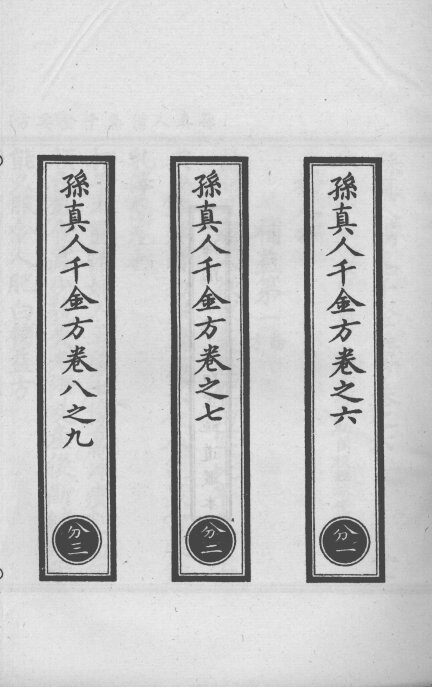 孫真人千金方卷之六
分一
孫真人千金方卷之七
分二
孫真人千金方卷八之九
分三